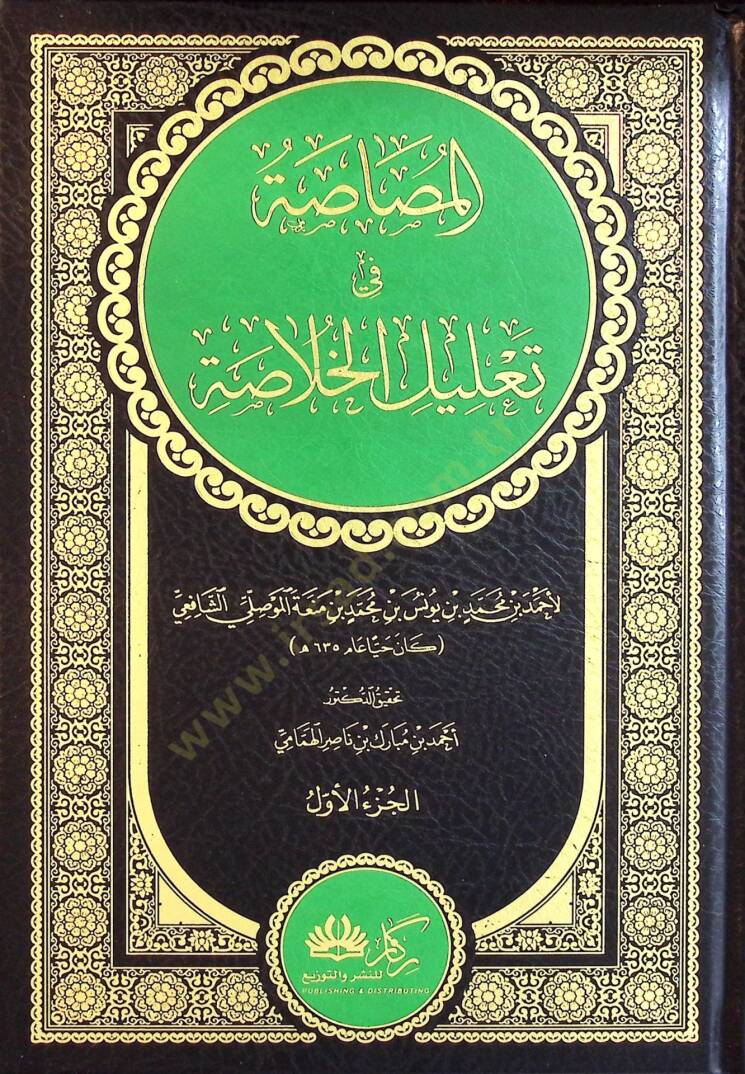 المُصَاصَةُ
في
تَعْلِيلِ الخُلَاصَةِ
لأحمَد بْن مُحَمَّد بْن يُونُس بْن مُحَمَّد بْن مَنَعَة المَوْصِلِيِّ الشَّافِعِيِّ
(كَانَ حَيًّا عَام ٦٣٥ هـ)
تحقيق الدكتور
أحمَد بْن مُبَارَك بْن نَاصِر الهمَامِي
الجُزْءُ الأوّلُ
ركائز
للنشر والتوزيع
PUBLISHING & DISTRIBUTING